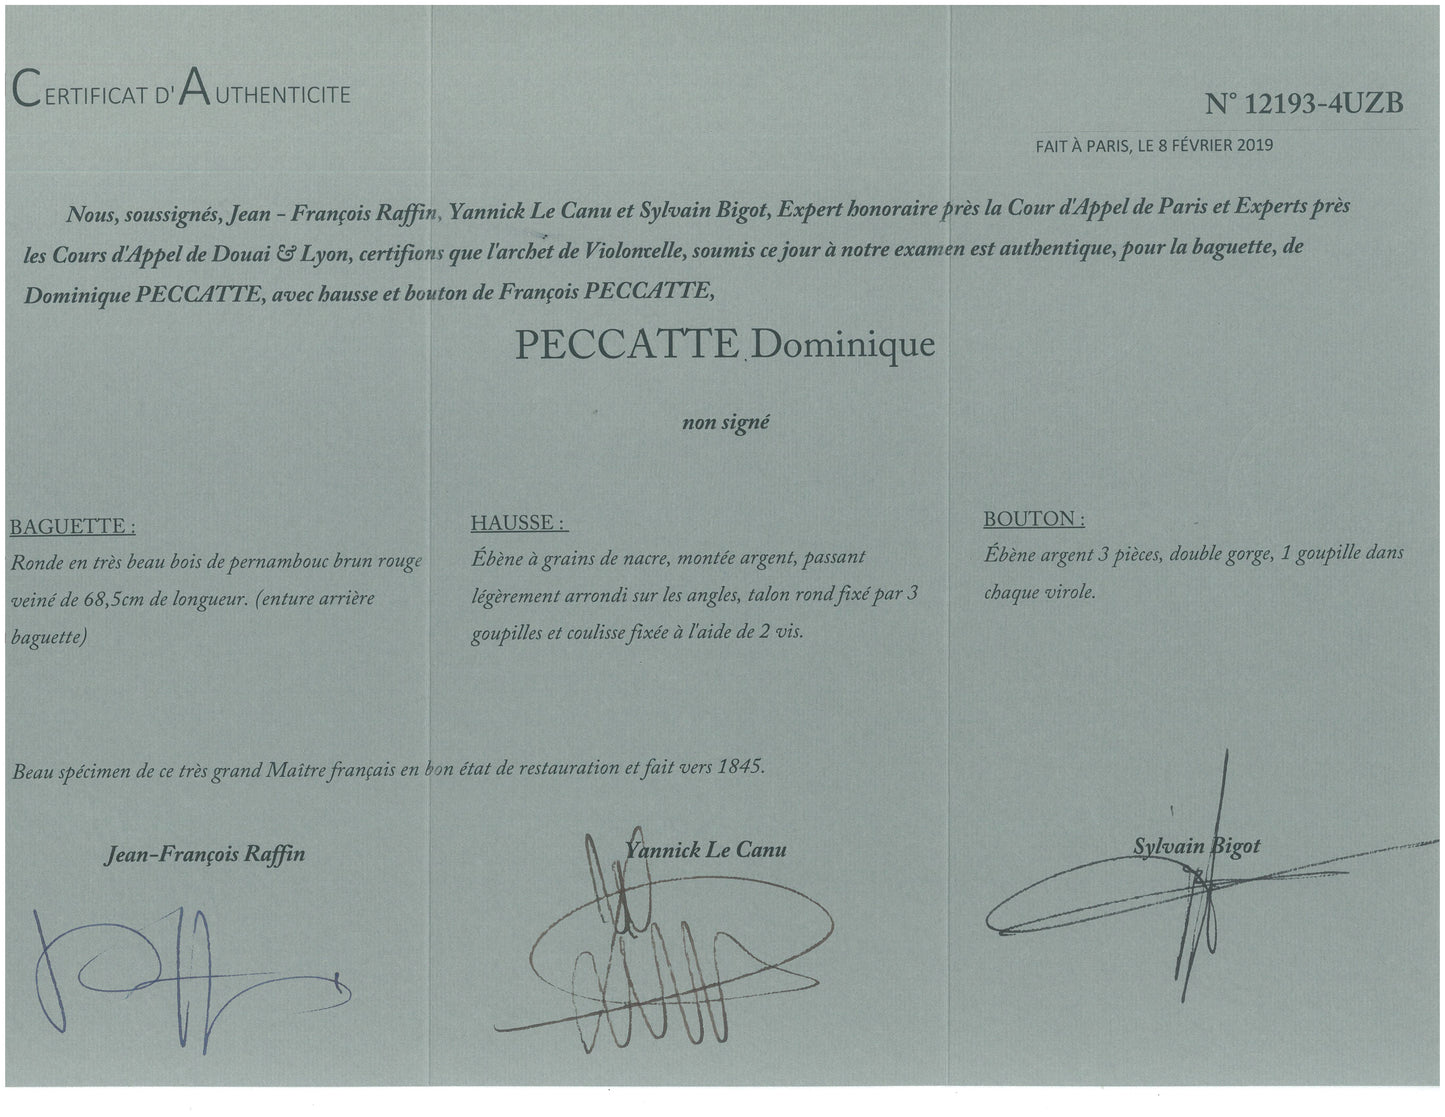 CERTIFICAT D'AUTHENTICITE
N° 12193-4UZB
FAIT À PARIS, LE 8 FÉVRIER 2019
Nous, soussignés, Jean – François Raffin, Yannick Le Canu et Sylvain Bigot, Expert honoraire près la Cour d'Appel de Paris et Experts près
les Cours d'Appel de Douai & Lyon, certifions que l'archet de Violoncelle, soumis ce jour à notre examen est authentique, pour la baguette, de
Dominique PECCATTE, avec hausse et bouton de François PECCATTE,
PECCATTE Dominique
non signé
BAGUETTE :
Ronde en très beau bois de pernambouc brun rouge
veiné de 68,5cm de longueur. (enture arrière
baguette)
HAUSSE :
Ébène à grains de nacre, montée argent, passant
légèrement arrondi sur les angles, talon rond fixé par 3
goupilles et coulisse fixée à l'aide de 2 vis.
BOUTON :
Ébène argent 3 pièces, double gorge, 1 goupille dans
chaque virole.
Beau spécimen de ce très grand Maître français en bon état de restauration et fait vers 1845.
Jean-François Raffin
Yannick Le Canu
Sylvain Bigot